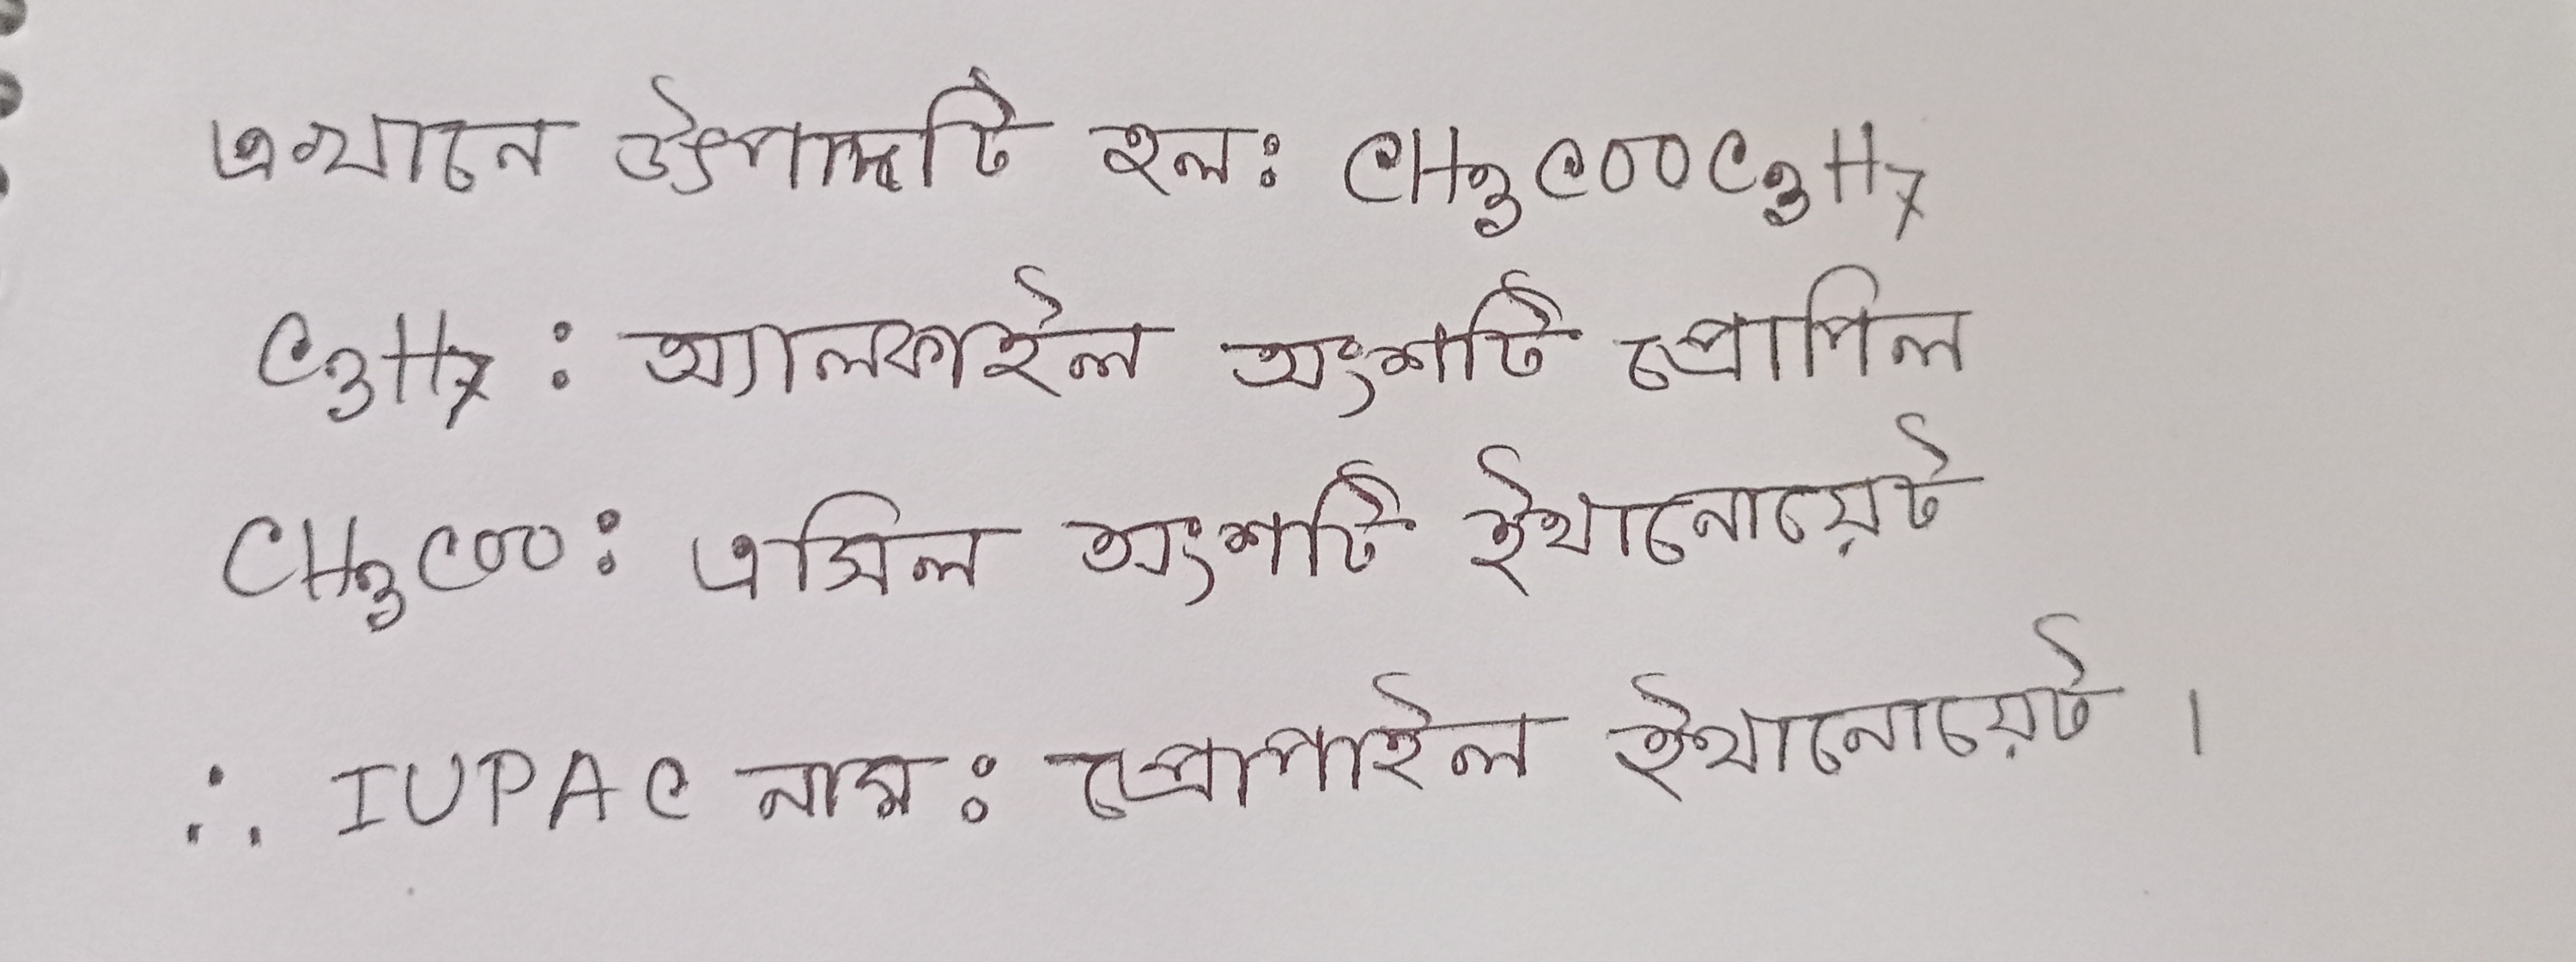 এখানে উৎপাদটি হল: CH₃COOC₃H₇
C₃H₇ : অ্যালকাইল অংশটি প্রোপিল
CH₃COO: এসিল অংশটি ইথানোয়েট
∴ IUPAC নাম : প্রোপাইল ইথানোয়েট ।